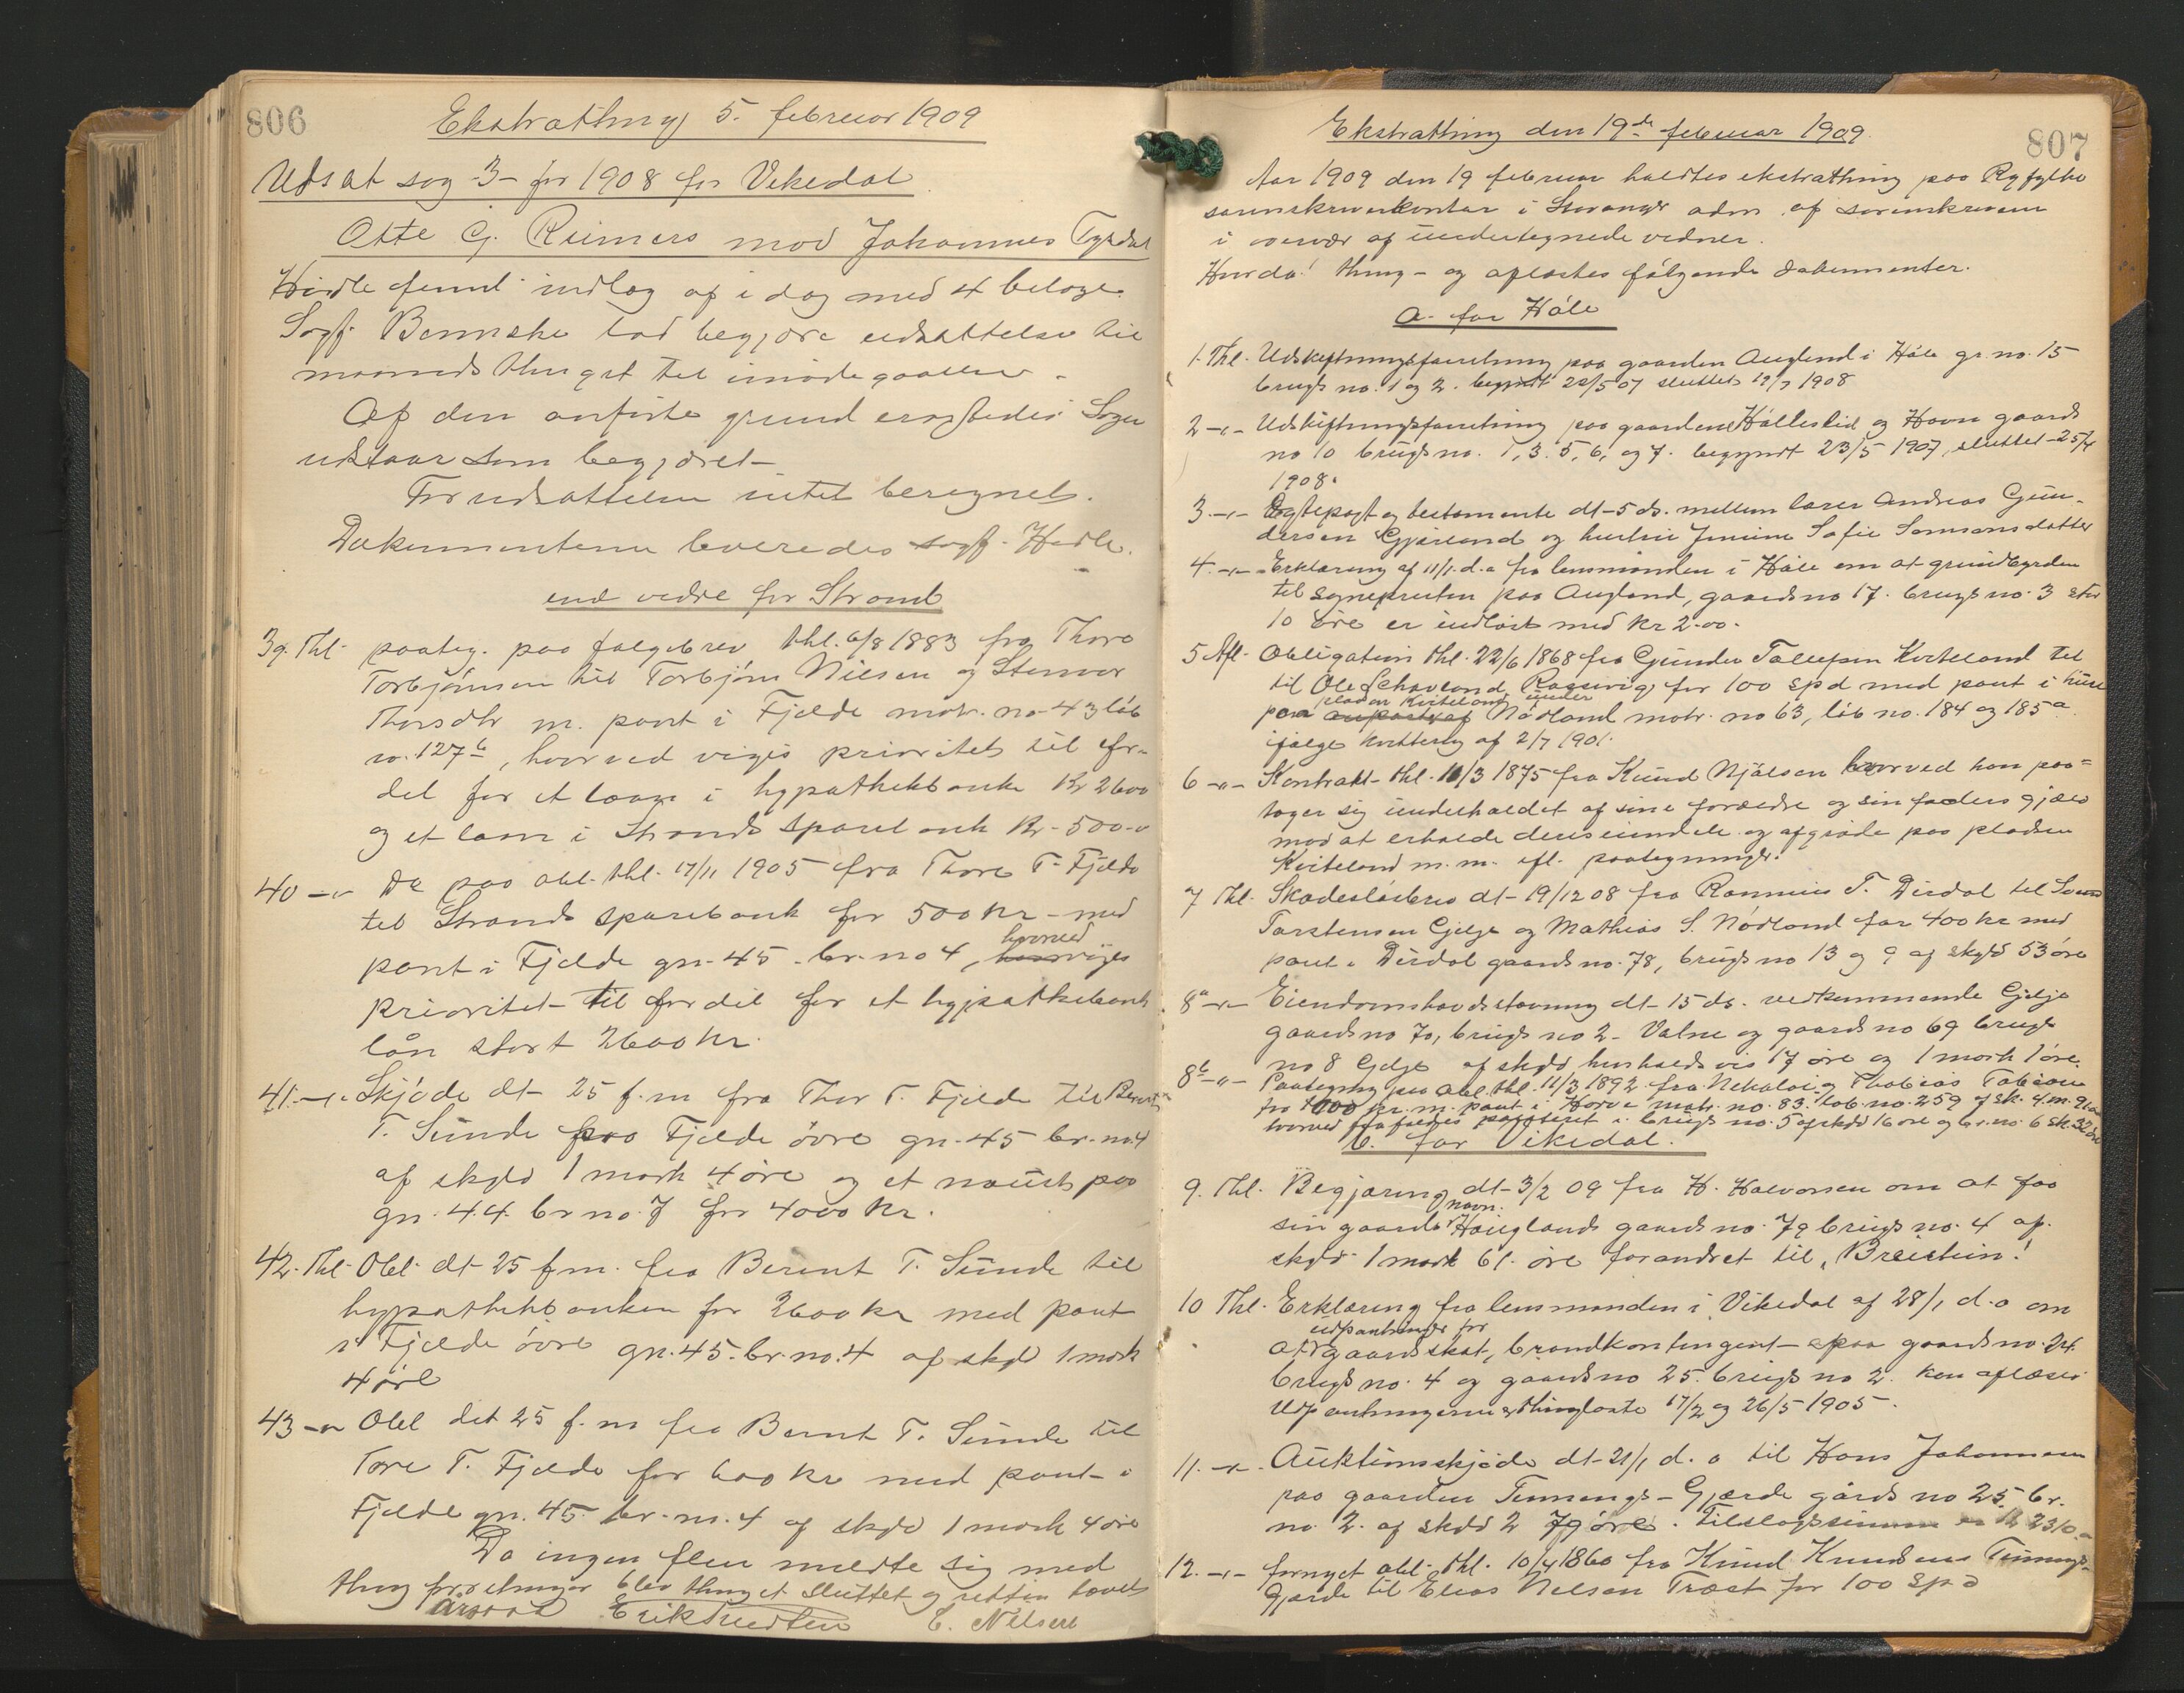 806
Ekstrathing 5. februar 1909
Udsat sag -3- for 1908 for Vikedal
Otto G. Reimers mod Johannes
freml. indlæg af i dag med 4 bilage.
Sagf. lod begjære udsættelse til
maanedsthinget til imødegaaelse.
Af den anførte grund Sagen
udstaar som begjæret.
For udsættelsen intet beregnet.
Dokumenterne leveredes sagf. Hadle.
end vidre for Strand
39. Thl. paateg. paa følgebrev thl. 6/8 1883 fra Thore
Torbjørnsen til Torbjørn Nilsen og Stenvor
Thorsdtr m. pant i Fjelde matr. no 43 løb
no. 127 b, hvorved viges prioritet til for-
del for et laan i hypothekbanken Kr 2600
og et laan i Strands sparebank Kr. 500.-
40 -"- Do paa obl. thl. 17/11 1905 fra Thore T. Fjelde
til Strands sparebank for 500 kr - med
pant i Fjelde gn. 45 br. no 4, hvorved viges
prioritet til fordel for et hypothekbank
lån stort 2600 kr.
41. -"- Skjøde dt 25 f.m fra Thor T. Fjelde til Bernt
T. Sunde paa Fjelde øvre gn. 45 br. no 4
af skyld 1 mark 4 øre og et naust paa
gn. 44 br no. 7 for 4000 kr.
42. Thl. Obl. dt 25 f.m. fra Berent T. Sunde til
hypothekbanken for 2600 kr med pant
i Fjelde øvre gn. 45. br. no. 4 af skyld 1 mark
4 øre
43 -"- Obl dat 25 f.m fra Bernt T. Sunde til
Tore T. Fjelde for 600 kr med pant i
Fjelde gn. 45 br. no. 4 af skyld 1 mark 4 øre
Da ingen flere meldte sig med
thingforretninger blev thinget sluttet og retten hævet
E. Nilsen
807
Ekstrathing den 19de februar 1909.
Aar 1909 den 19 februar holdtes ekstrathing paa Ryfylke
sorenskriverkontor i Stavanger adm. af sorenskriveren
i overvær af undertegnede vidner.
Hvorda! thing- og aflæstes følgende dokumenter.
a. for Høle
1. Thl. Udskiftningsforretning paa gaarden Auglend i Høle gr. no. 15
brugs no. 1 og 2. begyndt 22/5 07 sluttet 19/7 1908
2 -"- Udskiftningsforretning paa gaardene Hølleslid og Havn gaards
no 10 brugs no. 1, 3. 5, 6, og 7. begyndt 23/5 1907, sluttet 25/4
1908.
3. -"- Egtepagt og testamente dt 5 ds. mellem lærer Andreas Gun-
dersen og hustru Sofie Samsonsdatter
4. -"- Erklæring af 11/1. d.a fra lensmanden i Høle om at grundbyrden
til sognepresten paa Augland, gaards no 17. brugs no. 3 stor
10 øre er indløst med kr 2.00.
5 Afl. Obligation thl. 22/6 1868 fra Gunder Tollefsen Kviteland til
til Ole Schavland, Ragsevig for 100 spd med pant i huse
paa pladsen Kviteland under Nødland matr. no 63, løb no. 184 og 185 a
ifølge kvittering af 2/7 1901.
6 -"- Kontrakt thl. 11/3 1875 fra Knud Njålsen hvorved han paa-
tager sig underholdet af sine forældre og sin faders gjæld
mod at erholde deres eiendele og afgrøde paa pladsen
Kviteland m.m. ifl. paategninger.
7 Thl. Skadesløsbrev dt 19/12 08 fra Rasmus T. Dirdal til
Torstensen Gilje og Mathias S. Nødland for 400 kr med
pant i Dirdal gaards no. 78, brugs no 13 og 9 af skyld 53 øre
8a -"- Eiendomshovdstevning dt 15 ds. vedkommende Gilje
gaards no 70, brugs no 2 - Valne og gaards no 69 brugs
no 8 Gilje af skyld henholdsvis 17 øre og 1 mark 1 øre.
8b -"- Paategning paa obl. thl. 11/3 1892 fra Nikolai og Thobias Tobiasen
for 1000 kr. m. pant i matr. no. 83. løb. no. 259 af sk. 4 m. 91 øre
hvorved frafaldes panteret i brugs no. 5 af skyld 16 øre og br. no. 6 sk. 32 øre
b. for Vikedal.
9. Thl. Begjæring dt 3/2 09 fra H. Halvorsen om at faa
sin gaards navn Haugland gaards no. 79 brugs no. 4 af
skyld 1 mark 61 øre forandret til "Breistein!
10 Thl. Erklæring fra lensmanden i Vikedal af 28/1 d.a om
at udpantninger for gaardsskat, brandkontingent paa gaards no. 24
brugs no. 4 og gaards no 25. brugs no 2. kan aflæses
Udpantningerne er thinglæste 17/2 og 26/5 1905.
11. -"- Auktionsskjøde dt 21/1 d. a til Hans Johannesen
paa gaarden Gjærde gårds no 25 br.
no 2. af skyld 2 79 øre. Tilslagssummen er kr 2310.-
12. -"- fornyet obl. thl. 10/4 1860 fra Knud Knudsen
Gjærde til Elias Nelsen Træet for 100 Spd